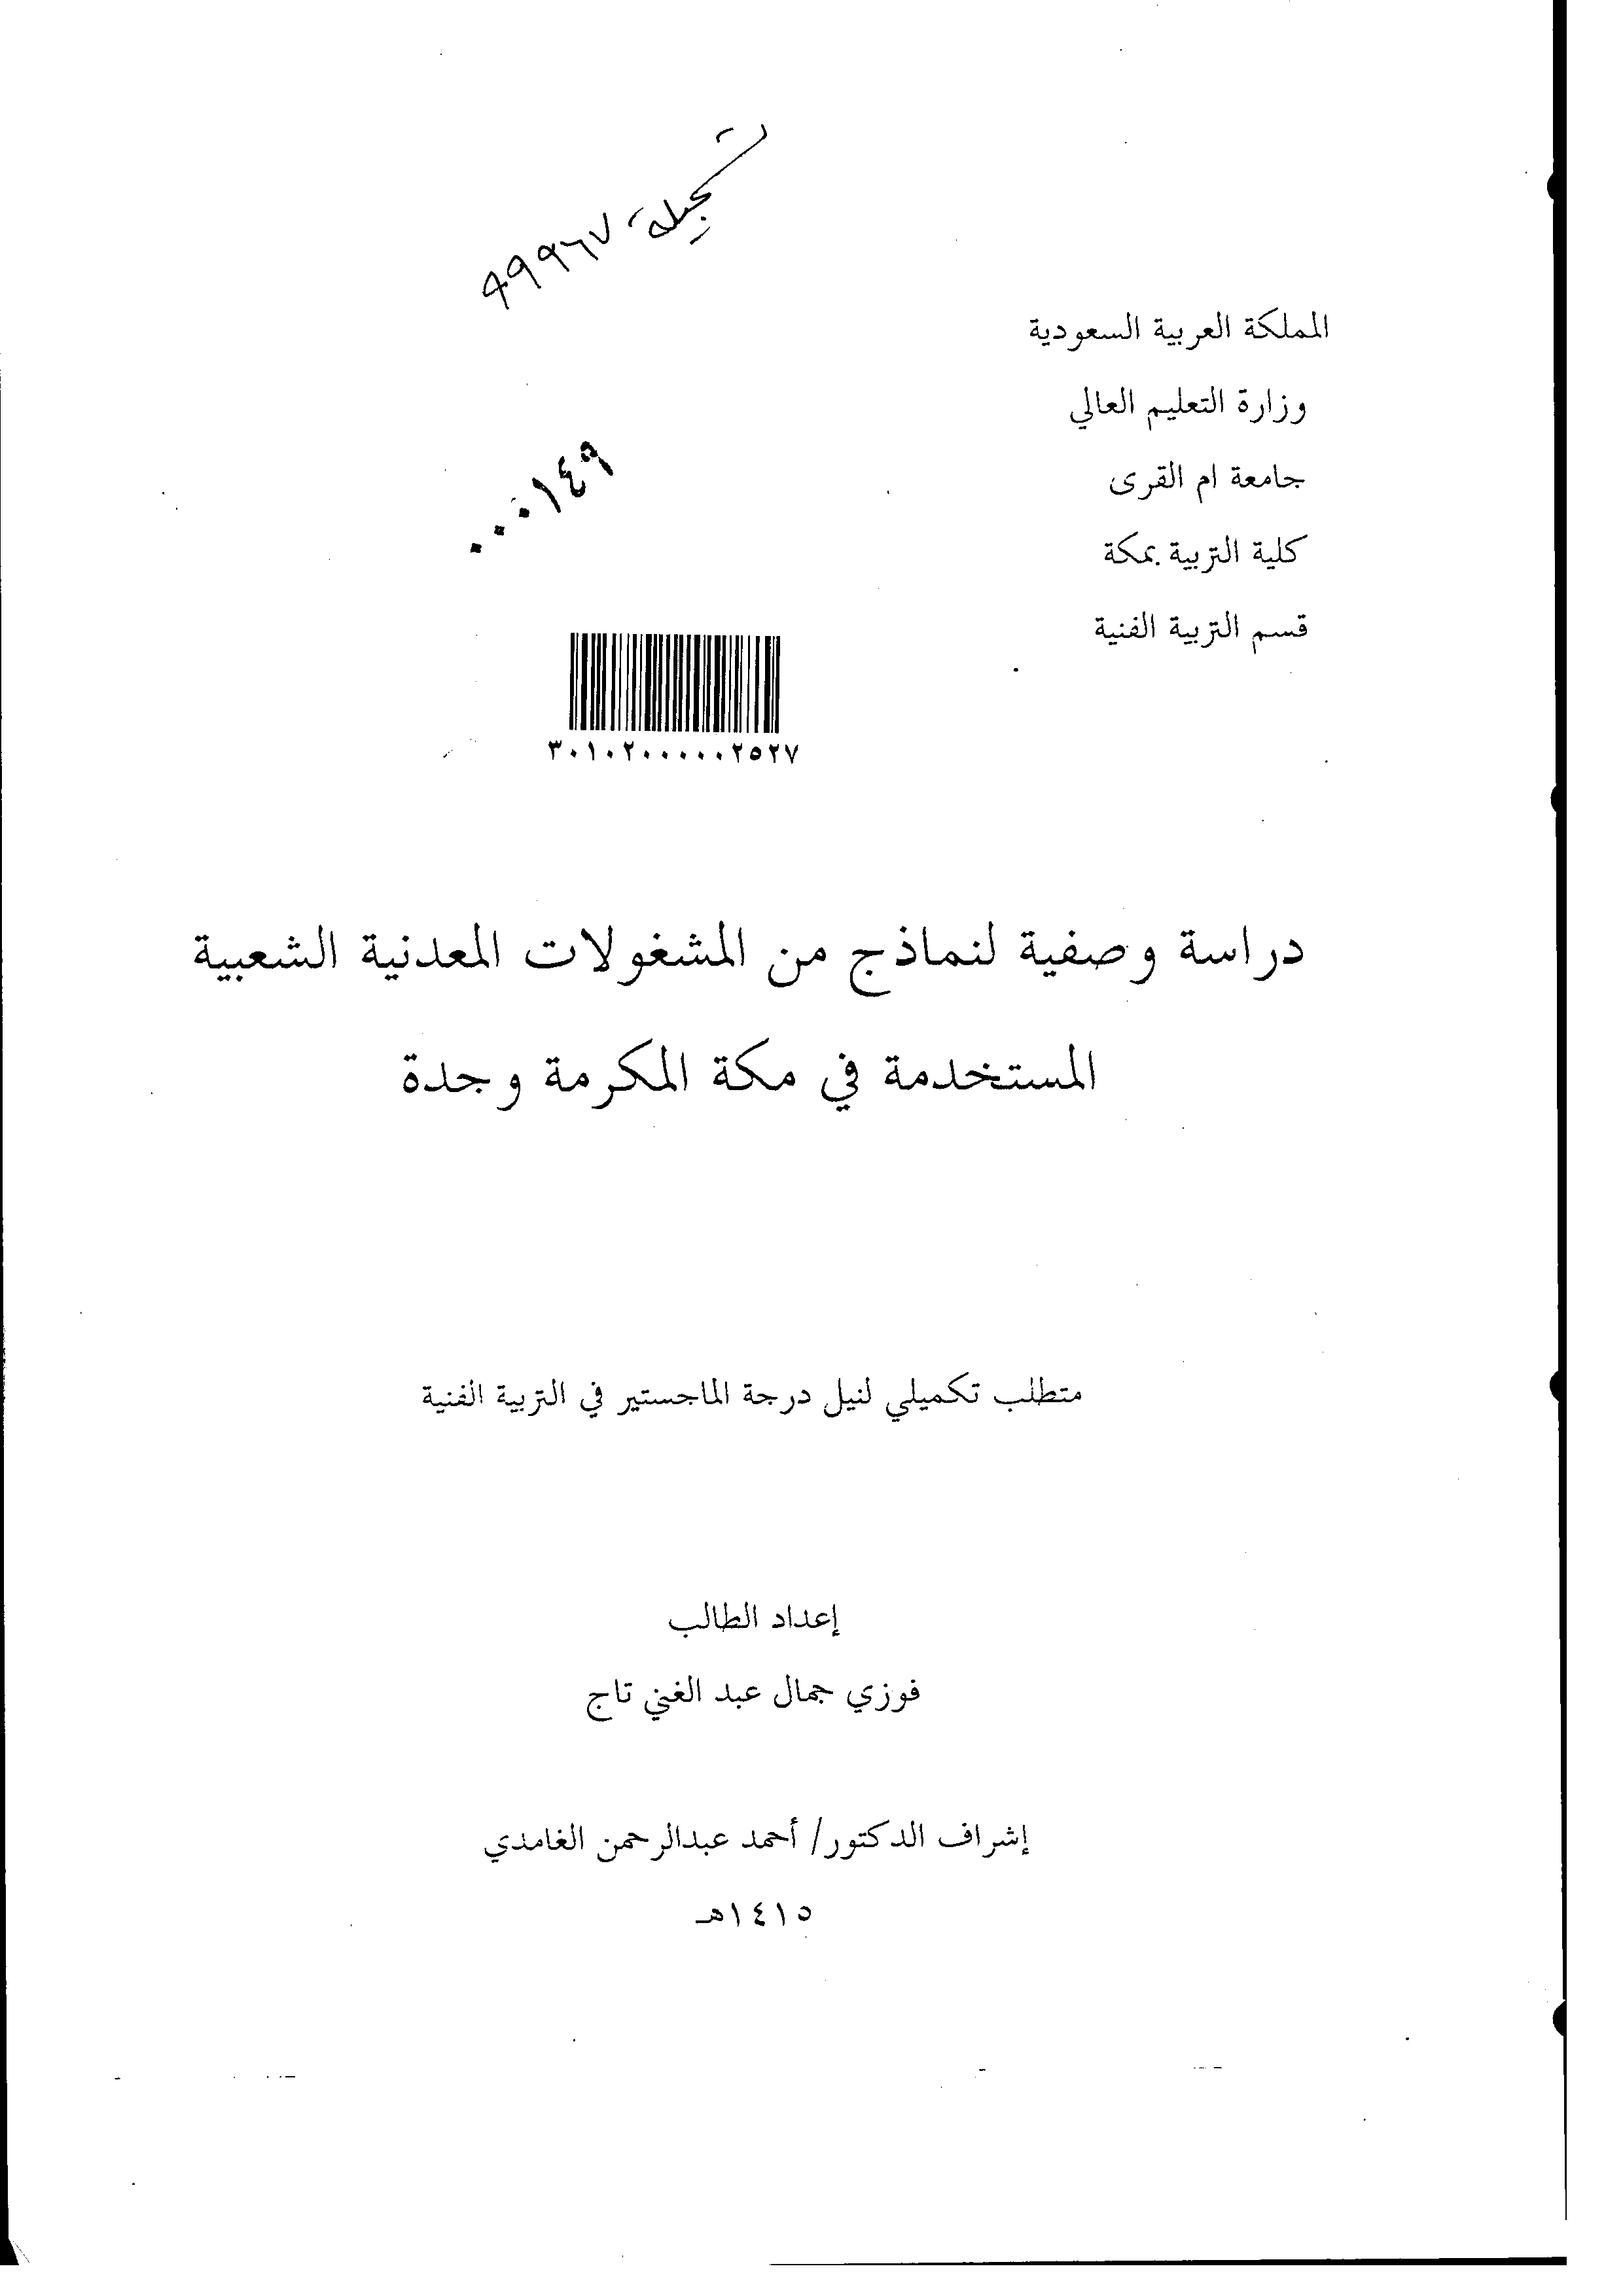 تسجيلة ٤٩٩٦٧
المملكة العربية السعودية
وزارة التعليم العالي
جامعة ام القرى
كلية التربية بمكة
قسم التربية الفنية
٠٠٠١٤٩
٣٠١٠٢٠٠٠٠٠٢٥٢٧
دراسة وصفية لنماذج من المشغولات المعدنية الشعبية
المستخدمة في مكة المكرمة وجدة
متطلب تكميلي لنيل درجة الماجستير في التربية الفنية
إعداد الطالب
فوزي جمال عبد الغني تاج
إشراف الدكتور/ أحمد عبدالرحمن الغامدي
١٤١٥هـ